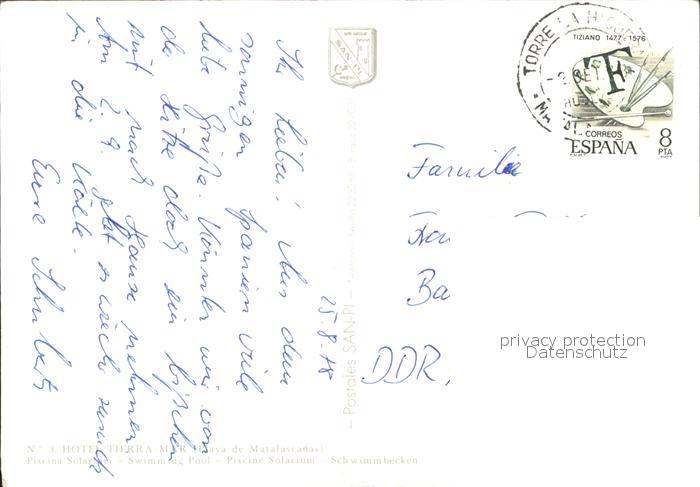 25.8.78
Ihr Lieben! Aus dem
sonnigen Spanien viele
liebe Grüße. Könnten wir von
der Hitze doch ein bißchen
mit nach Hause nehmen
Am 2.9. geht es wieder zurück
in die Kälte.
Eure
Familie
Ba
DDR.
TORRE LA HIGUERA
SET
TIZIANO 1477-1576
T
CORREOS
ESPAÑA
8
PTA
SAN-PI
– Postales SAN-PI –
privacy protection
Datenschutz
N.º 3. HOTEL TIERRA MAR (Playa de Matalascañas)
Piscina Solarium – Swimming Pool – Piscine Solarium – Schwimmbecken